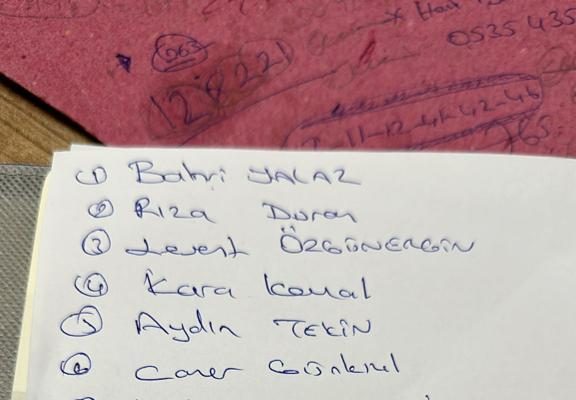 063
128221
0535 435
11-12-41-42-46
765
① Bahri YALAZ
② Rıza Duran
③ Levent ÖZGÜNERGİN
④ Kara Kemal
⑤ Aydın TEKİN
⑥ Caner